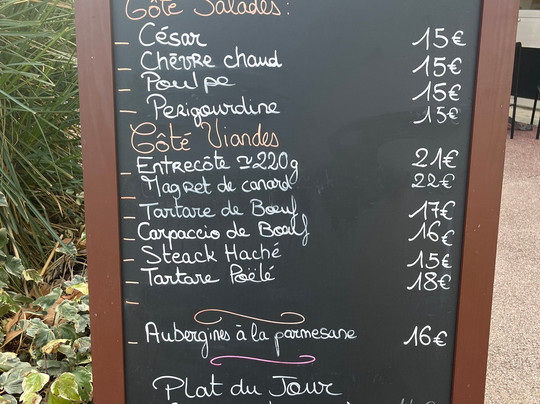 Côté Salades:
- César 15€
- Chèvre chaud 15€
- Poulpe 15€
- Périgourdine 15€
Côté Viandes
- Entrecôte ≃220g 21€
- Magret de canard 22€
- Tartare de Bœuf 17€
- Carpaccio de Bœuf 16€
- Steack Haché 15€
- Tartare Poëlé 18€
- Aubergines à la parmesane 16€
Plat du Jour